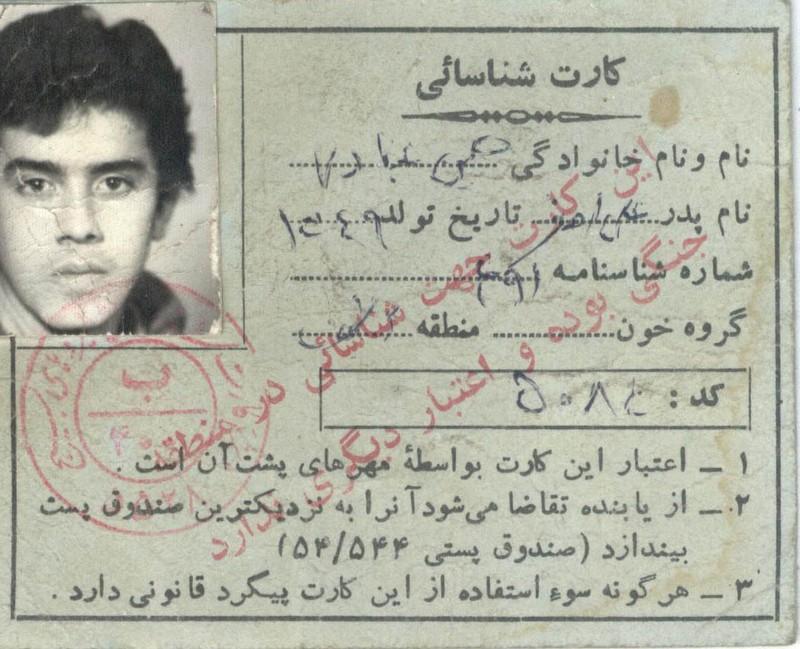 کارت شناسائی
نام ونام خانوادگی
نام پدر تاریخ تولد ۱۳۴۹
شماره شناسنامه
گروه خون منطقه
کد : ۵۰۸۴
۱ – اعتبار این کارت بواسطهٔ مهرهای پشت آن است .
۲ – از یابنده تقاضا می‌شود آنرا به نزدیکترین صندوق پست
بیندازد (صندوق پستی ۵۴/۵۴۴)
۳ – هرگونه سوءِ استفاده از این کارت پیگرد قانونی دارد .
این کارت جهت شناسائی در منطقه
جنگی بوده و اعتبار دیگری ندارد
ب